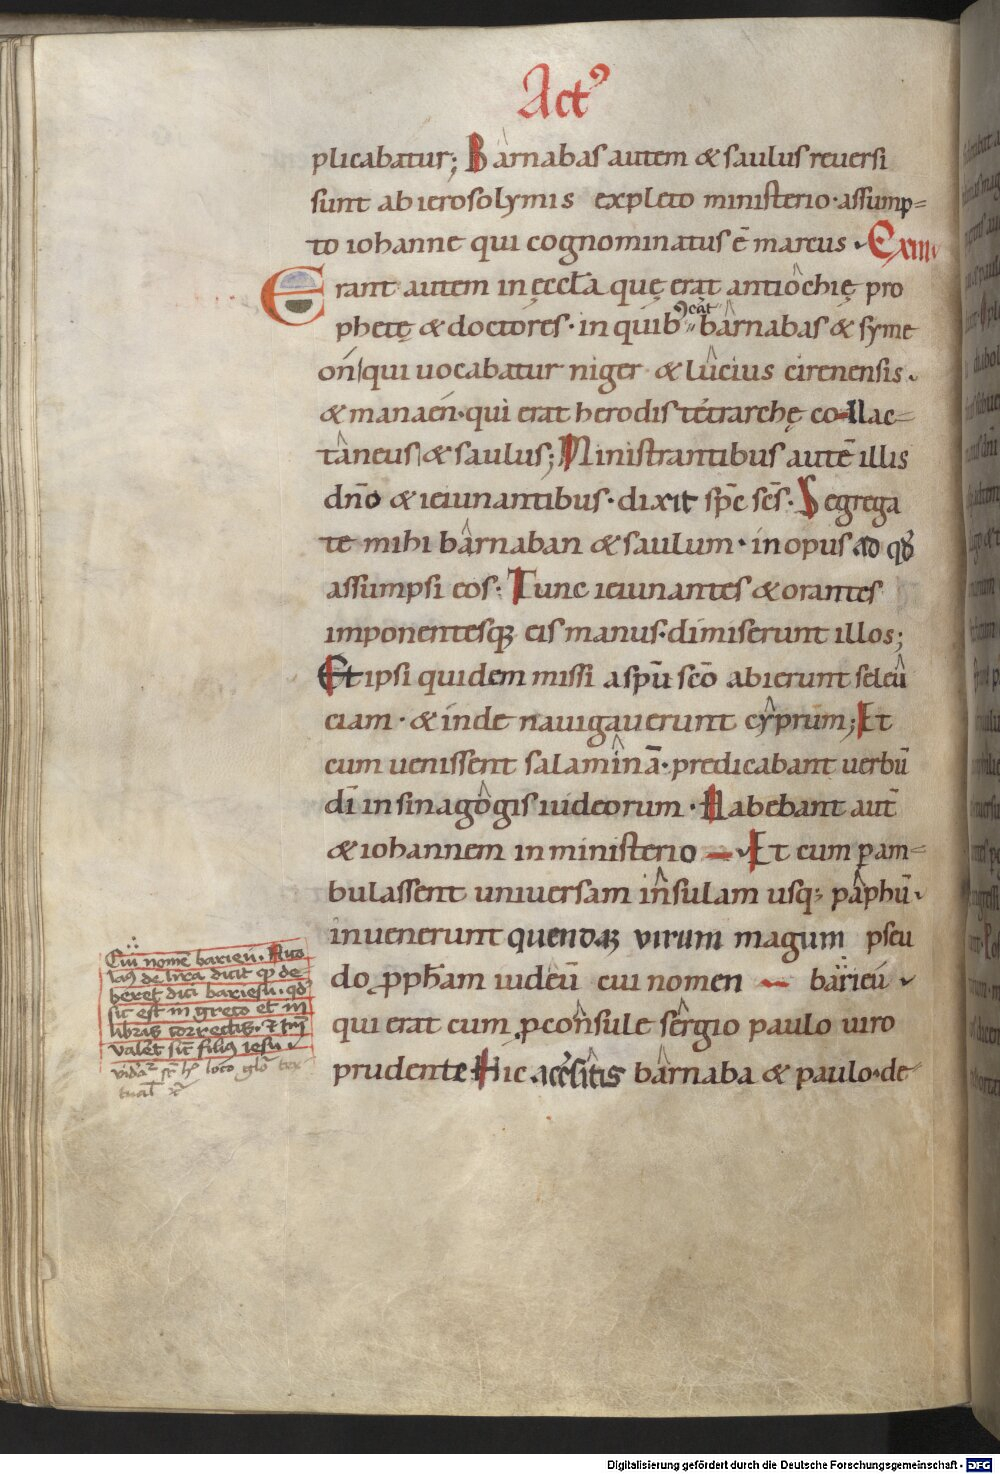 Actꝰ
plicabatur; Barnabas autem & saulus reuersi
sunt ab ierosolymis expleto ministerio· assump=
to iohanne qui cognominatus ē marcus· C xiii
Erant autem in ęccl̄a quę erat antiochię pro
phetę & doctores· in quib; barnabas & syme
on qui uocabatur niger & lucius cirenensis·
& manaen· qui erat herodis tetrarchę co-llac=
taneus & saulus; Ministrantibus autē illis
dn̄o & ieiunantibus· dixit sp̄c sc̄s· Segrega
te mihi barnaban & saulum· in opus ad qđ
assumpsi eos: Tunc ieiunantes & orantes
imponentesqꝫ eis manus· dimiserunt illos;
Et ipsi quidem missi a spū scō abierunt seleu
ciam· & inde nauigauerunt cyprum; Et
cum uenissent salaminā· predicabant uerbū
dī in sinagogis iudeorum· Habebant aut̄
& iohannem in ministerio — Et cum ꝑam=
bulassent uniuersam insulam usqꝫ paphū·
inuenerunt quendaꝫ virum magum pseu
do ꝓph̄am iudeū cui nomen — barieu
qui erat cum ꝓconsule sergio paulo uiro
prudente Hic accersitis barnaba & paulo· de
Cui nomē barieu. Nico
laꝰ de lira dicit ꝙ de
beret dici bariesu. qđ
sic est in greco et in
libris correctis· ⁊
valet sic filiꝰ iesu
loco